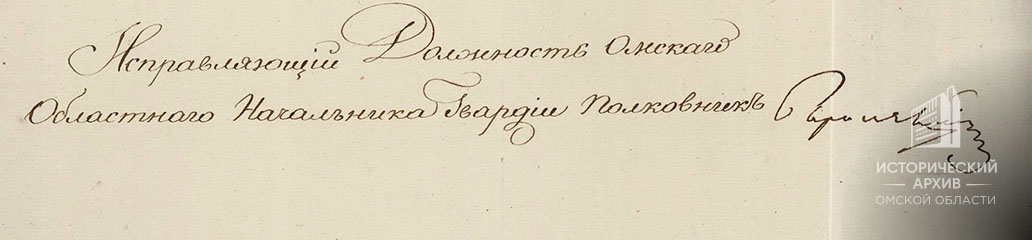 Исправляющій Должность Омскаго
Областнаго Начальника Гвардіи Полковникъ
ИСТОРИЧЕСКИЙ
АРХИВ
ОМСКОЙ ОБЛАСТИ